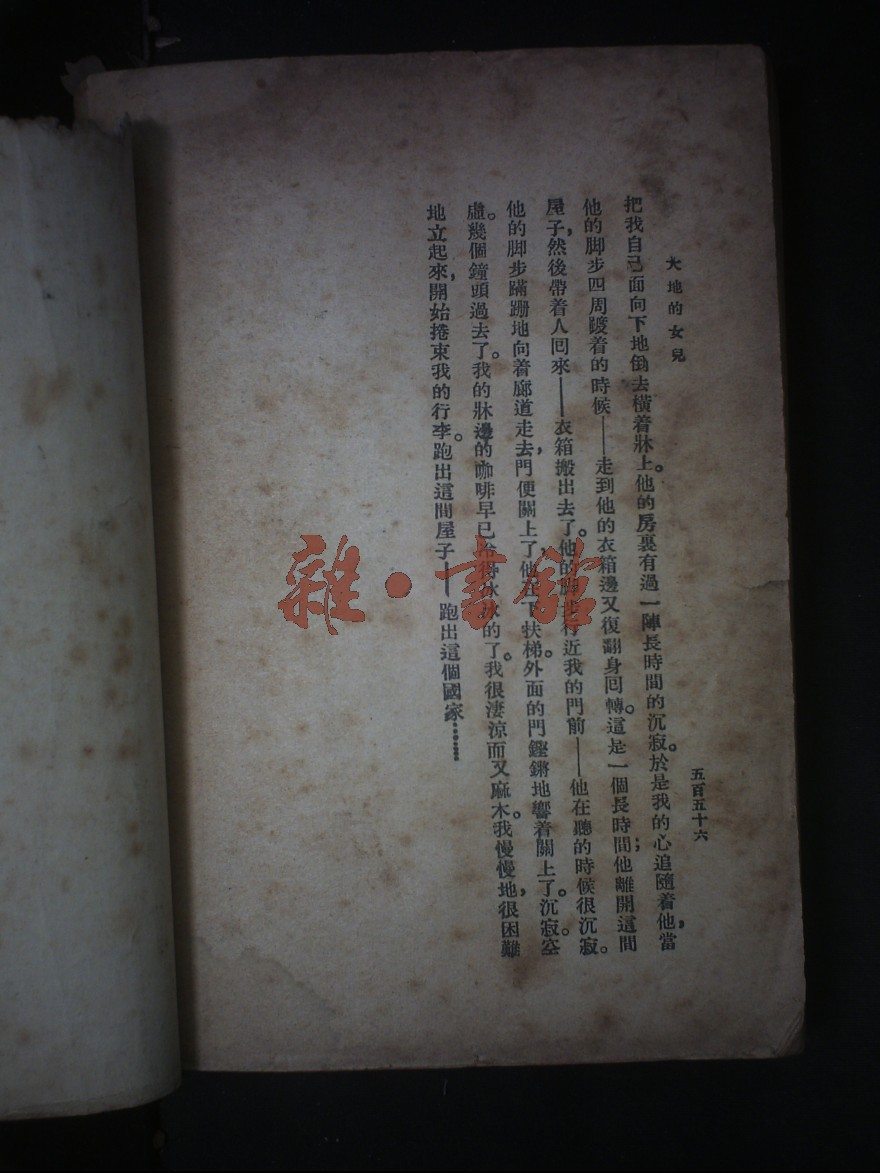 大地的女兒
五百五十六
把我自己面向下地倒去橫着牀上。他的房裏有過一陣長時間的沉寂。於是我的心追隨着他,當
他的脚步四周踱着的時候——走到他的衣箱邊又復翻身囘轉。這是一個長時間;他離開這間
屋子,然後帶着人囘來——衣箱搬出去了。他的脚步行近我的門前——他在聽的時候很沉寂。
他的脚步蹣跚地向着廊道走去,門便關上了,他在下扶梯。外面的門鏗鏘地響着關上了。沉寂。空
虛。幾個鐘頭過去了。我的牀邊的咖啡早已冷得冰冰的了。我很淒涼而又麻木。我慢慢地,很困難
地立起來,開始捲束我的行李。跑出這間屋子——跑出這個國家……
雜·書館